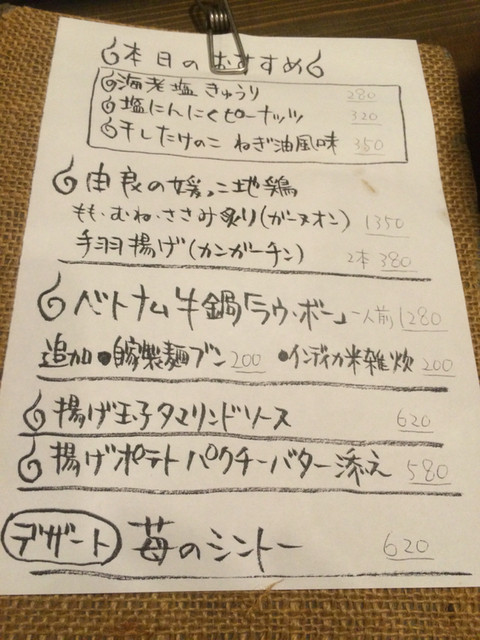 本日のおすすめ
海老塩きゅうり 280
塩にんにくピーナッツ 320
干したけのこ ねぎ油風味 350
由良の媛っこ地鶏
もも・むね・ささみ炙り(ガーヌオン) 1350
手羽揚げ(カンガーチン) 2本 380
ベトナム牛鍋「ラウ・ボー」一人前 1280
追加 ●自家製麺ブン 200 ●インディカ米雑炊 200
揚げ玉子タマリンドソース 620
揚げポテト パクチーバター添え 580
デザート 苺のシントー 620